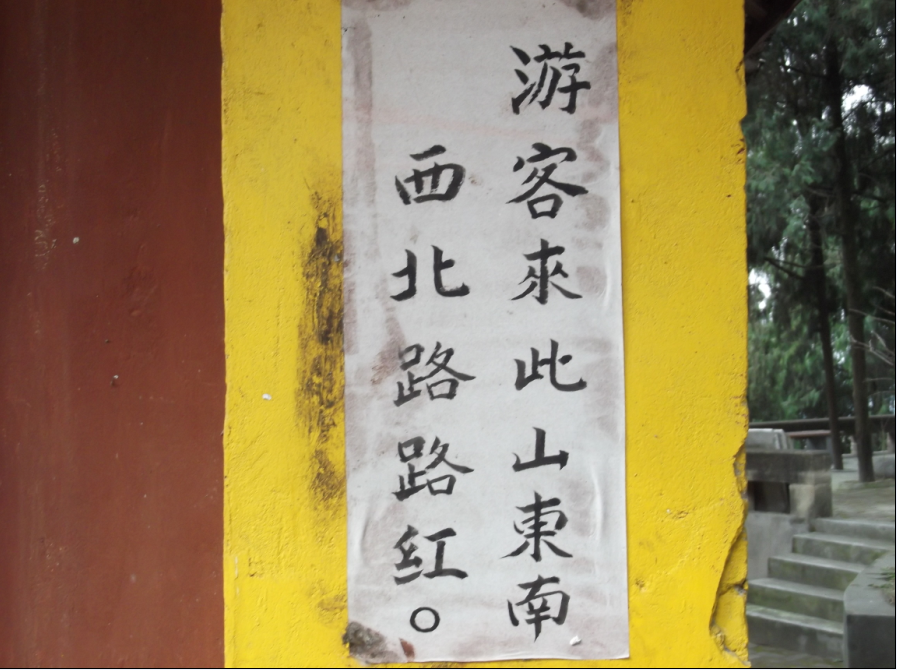 游客來此山東南
西北路路紅。